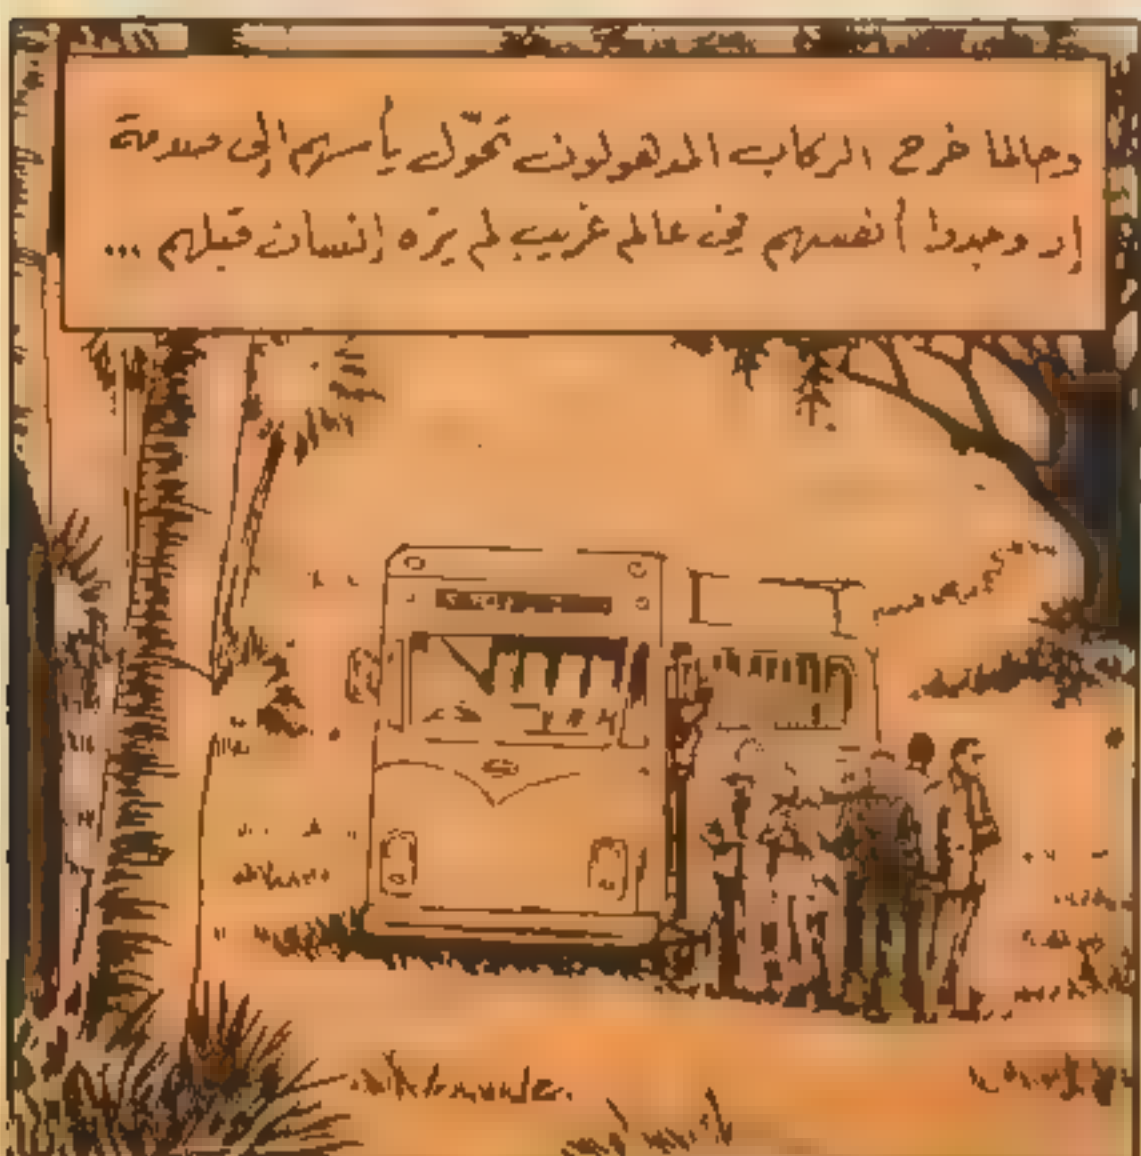 وحالما خرج الركاب المذهولون تحوّل يأسهم إلى صدمة
إذ وجدوا أنفسهم في عالم غريب لم يَرَه إنسان قبلهم ...